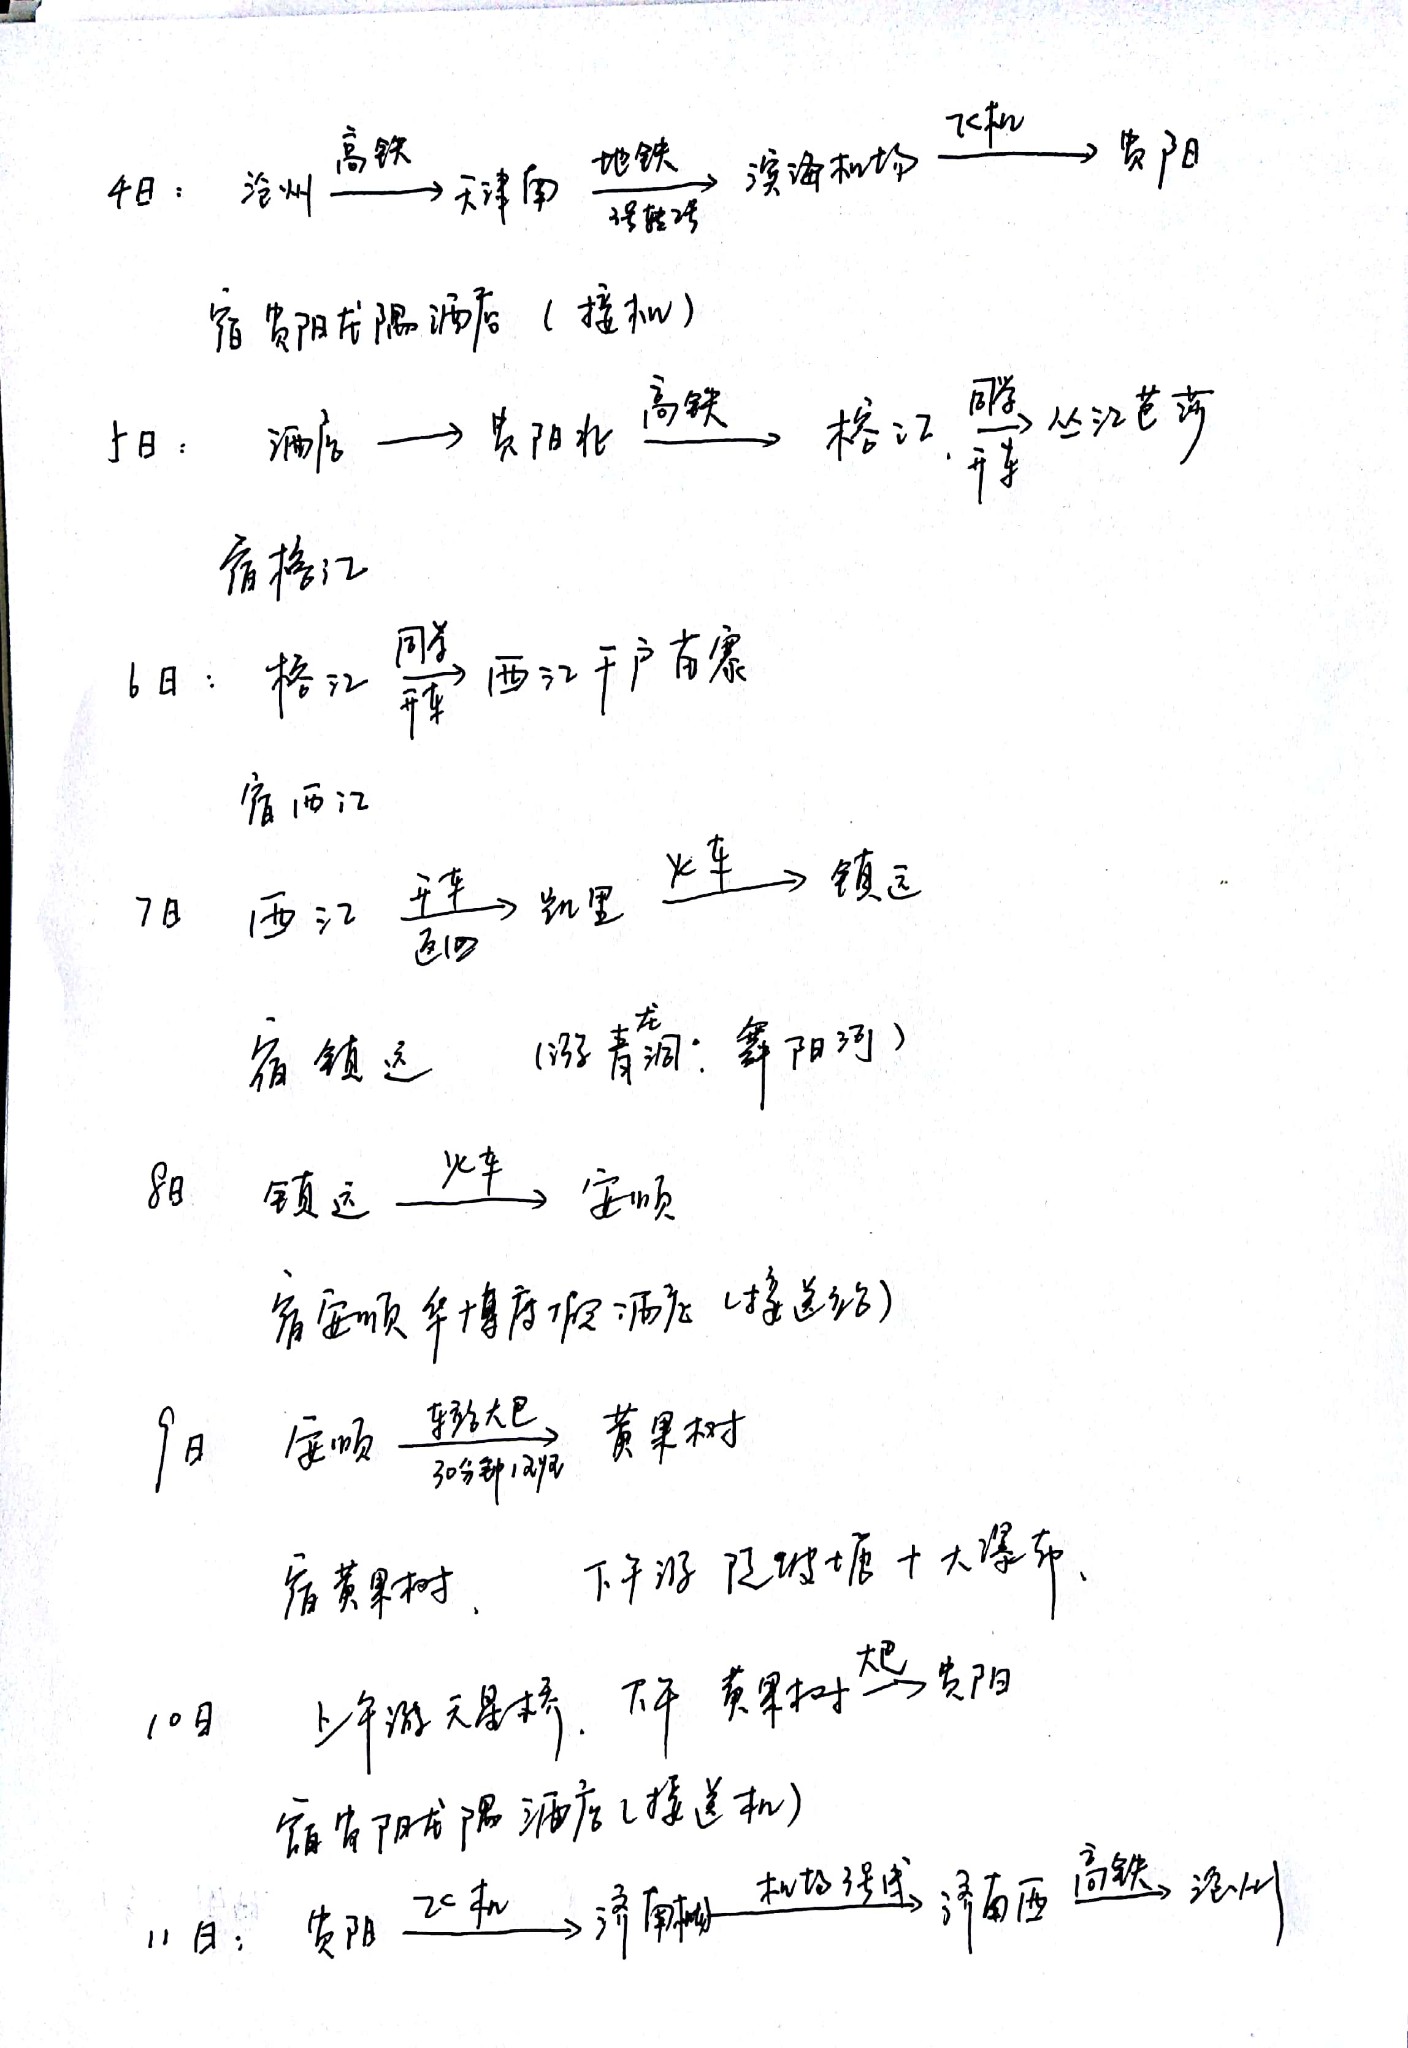 4日: 沧州 高铁→ 天津南 地铁→ 3号转2号 滨海机场 飞机→ 贵阳
宿贵阳龙隅酒店(接机)
5日: 酒店 → 贵阳北 高铁→ 榕江. 同学→ 开车 丛江芭莎
宿榕江
6日: 榕江 同学→ 开车 西江千户苗寨
宿西江
7日 西江 开车→ 返回 凯里 火车→ 镇远
宿镇远 (游青龙洞: 舞阳河)
8日 镇远 火车→ 安顺
宿安顺华博度假酒店(接送站)
9日 安顺 大巴→ 30分钟1班 黄果树
宿黄果树. 下午游陡坡塘+大瀑布.
10日 上午游天星桥. 下午 黄果树 大巴→ 贵阳
宿贵阳龙隅酒店(接送机)
11日: 贵阳 飞机→ 济南 机场3号线→ 济南西 高铁→ 沧州